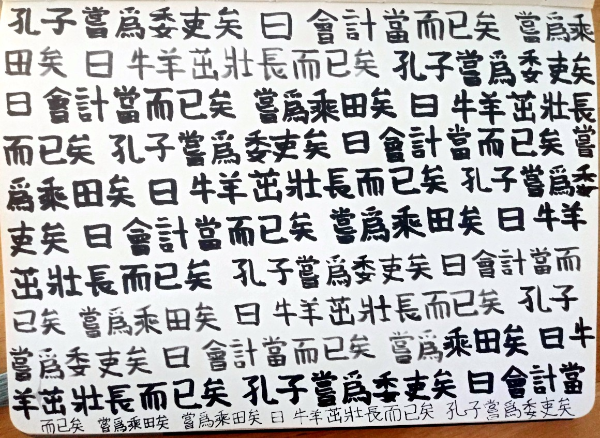 孔子嘗爲委吏矣 曰 會計當而已矣 嘗爲乘
田矣 曰 牛羊茁壯長而已矣 孔子嘗爲委吏矣
曰 會計當而已矣 嘗爲乘田矣 曰 牛羊茁壯長
而已矣 孔子嘗爲委吏矣 曰 會計當而已矣 嘗
爲乘田矣 曰 牛羊茁壯長而已矣 孔子嘗爲委
吏矣 曰 會計當而已矣 嘗爲乘田矣 曰 牛羊
茁壯長而已矣 孔子嘗爲委吏矣 曰 會計當而
已矣 嘗爲乘田矣 曰 牛羊茁壯長而已矣 孔子
嘗爲委吏矣 曰 會計當而已矣 嘗爲乘田矣 曰 牛
羊茁壯長而已矣 孔子嘗爲委吏矣 曰 會計當
而已矣 嘗爲乘田矣 嘗爲乘田矣 曰 牛羊茁壯長而已矣 孔子嘗爲委吏矣